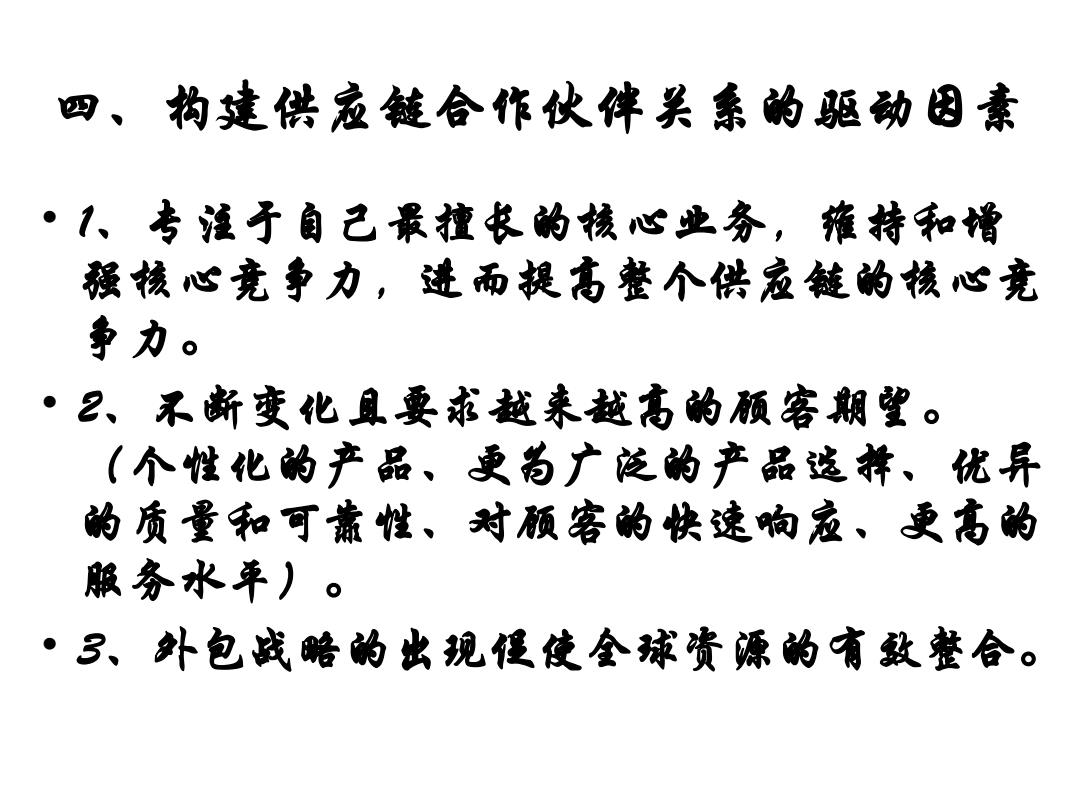 四、构建供应链合作伙伴关系的驱动因素
• 1、专注于自己最擅长的核心业务，维持和增
强核心竞争力，进而提高整个供应链的核心竞
争力。
• 2、不断变化且要求越来越高的顾客期望。
（个性化的产品、更为广泛的产品选择、优异
的质量和可靠性、对顾客的快速响应、更高的
服务水平）。
• 3、外包战略的出现促使全球资源的有效整合。